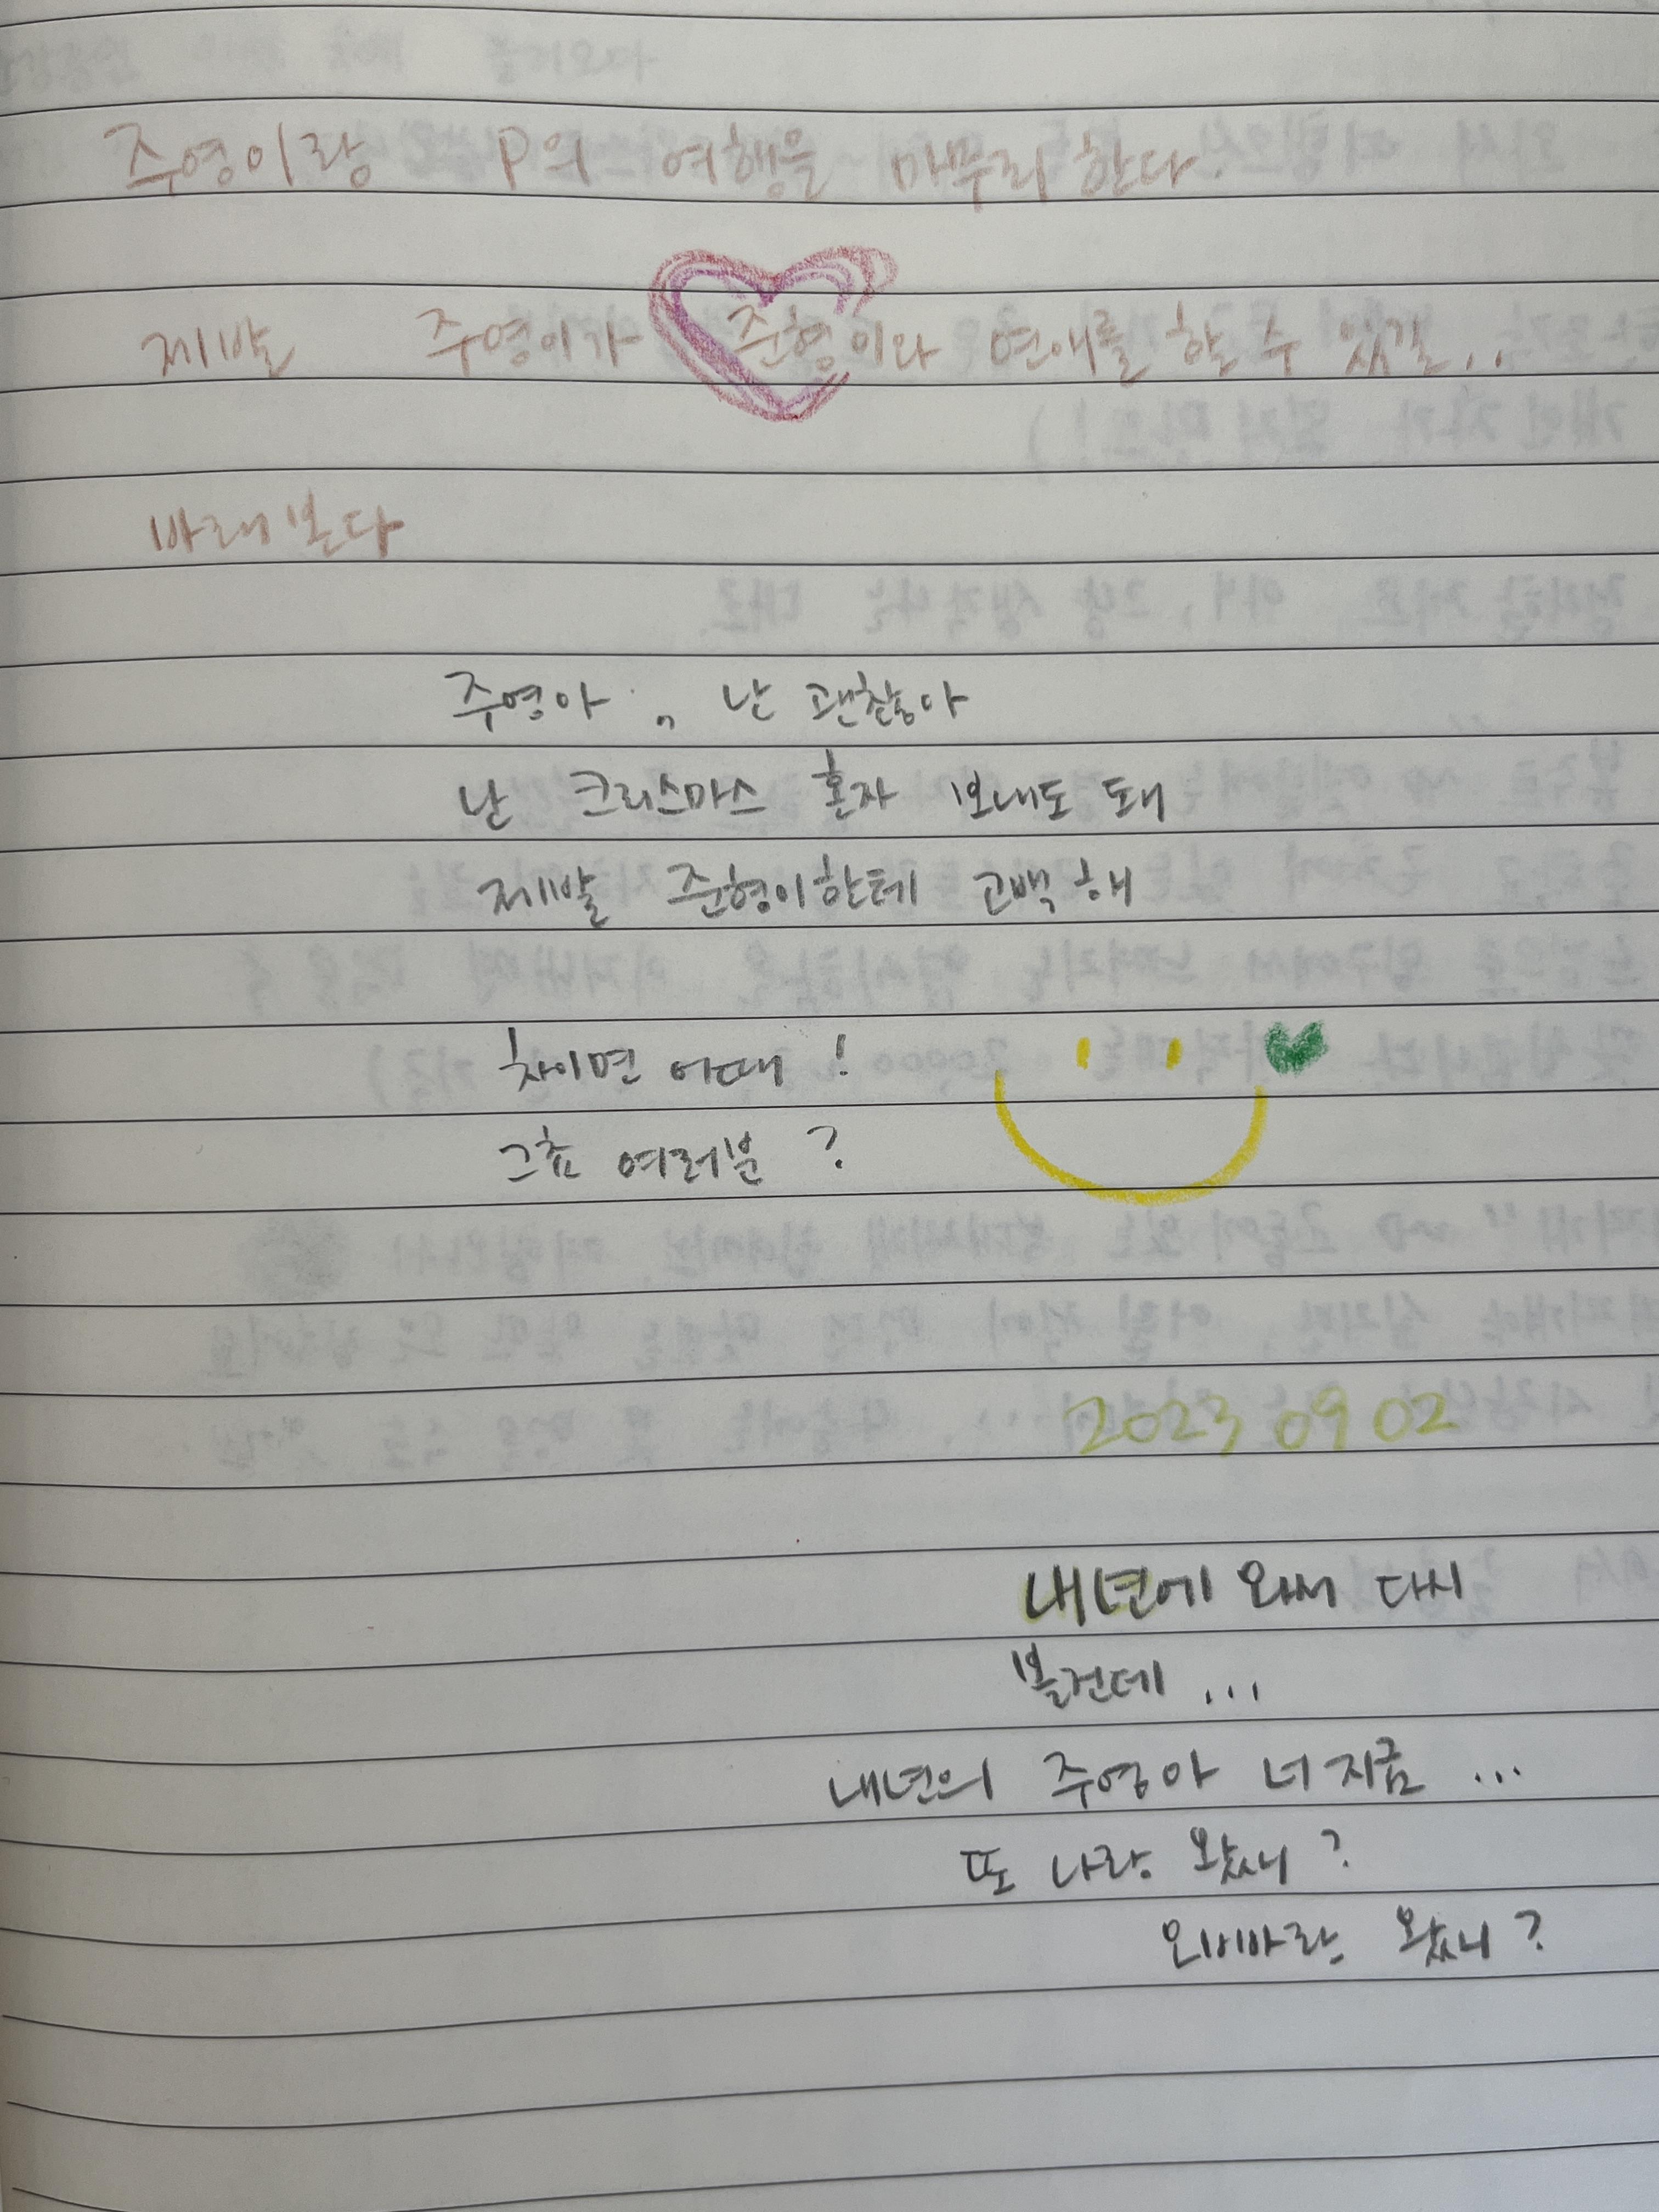 주영이랑 P의 여행을 마무리한다.
제발 주영이가 준형이와 연애를 할 수 있길..
바래본다
주영아 .. 난 괜찮아
난 크리스마스 혼자 보내도 돼
제발 준형이한테 고백해
차이면 어때!
그쵸 여러분?
2023 09 02
내년에 와서 다시
볼건데...
내년의 주영아 너 지금...
또 나랑 왔니?
오빠랑 왔니?